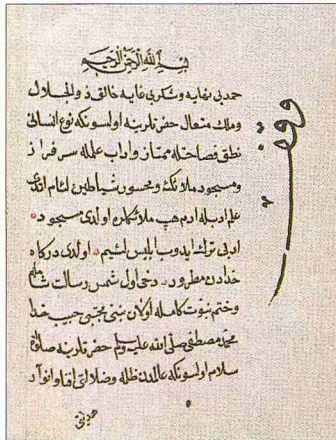 بسم الله الرحمن الرحيم
حمد بی نهایه و شکر بی غایه خالق ذو الجلال
و ملك متعال حضرتلرینه اولسونکه نوع انسانی
نطق فصاحتله ممتاز و اداب علمله سرفراز
و مسجود ملائك و محسود شیاطین لئام ایدی
علم ادبله ادم هپ ملائکه اولدی مسجود
ادبی ترك ایدوب ابلیس لئیم اولدی درکاه
خدادن مطرود دخی اول شمس رسالت
و ختم نبوت کامله اولان نبی مجتبی حبیب خدا
محمد مصطفی صلی الله علیه وسلم حضرتلرینه صلوة
سلام اولسونکه عالمدن ظلمه و ضلالتی
وقف